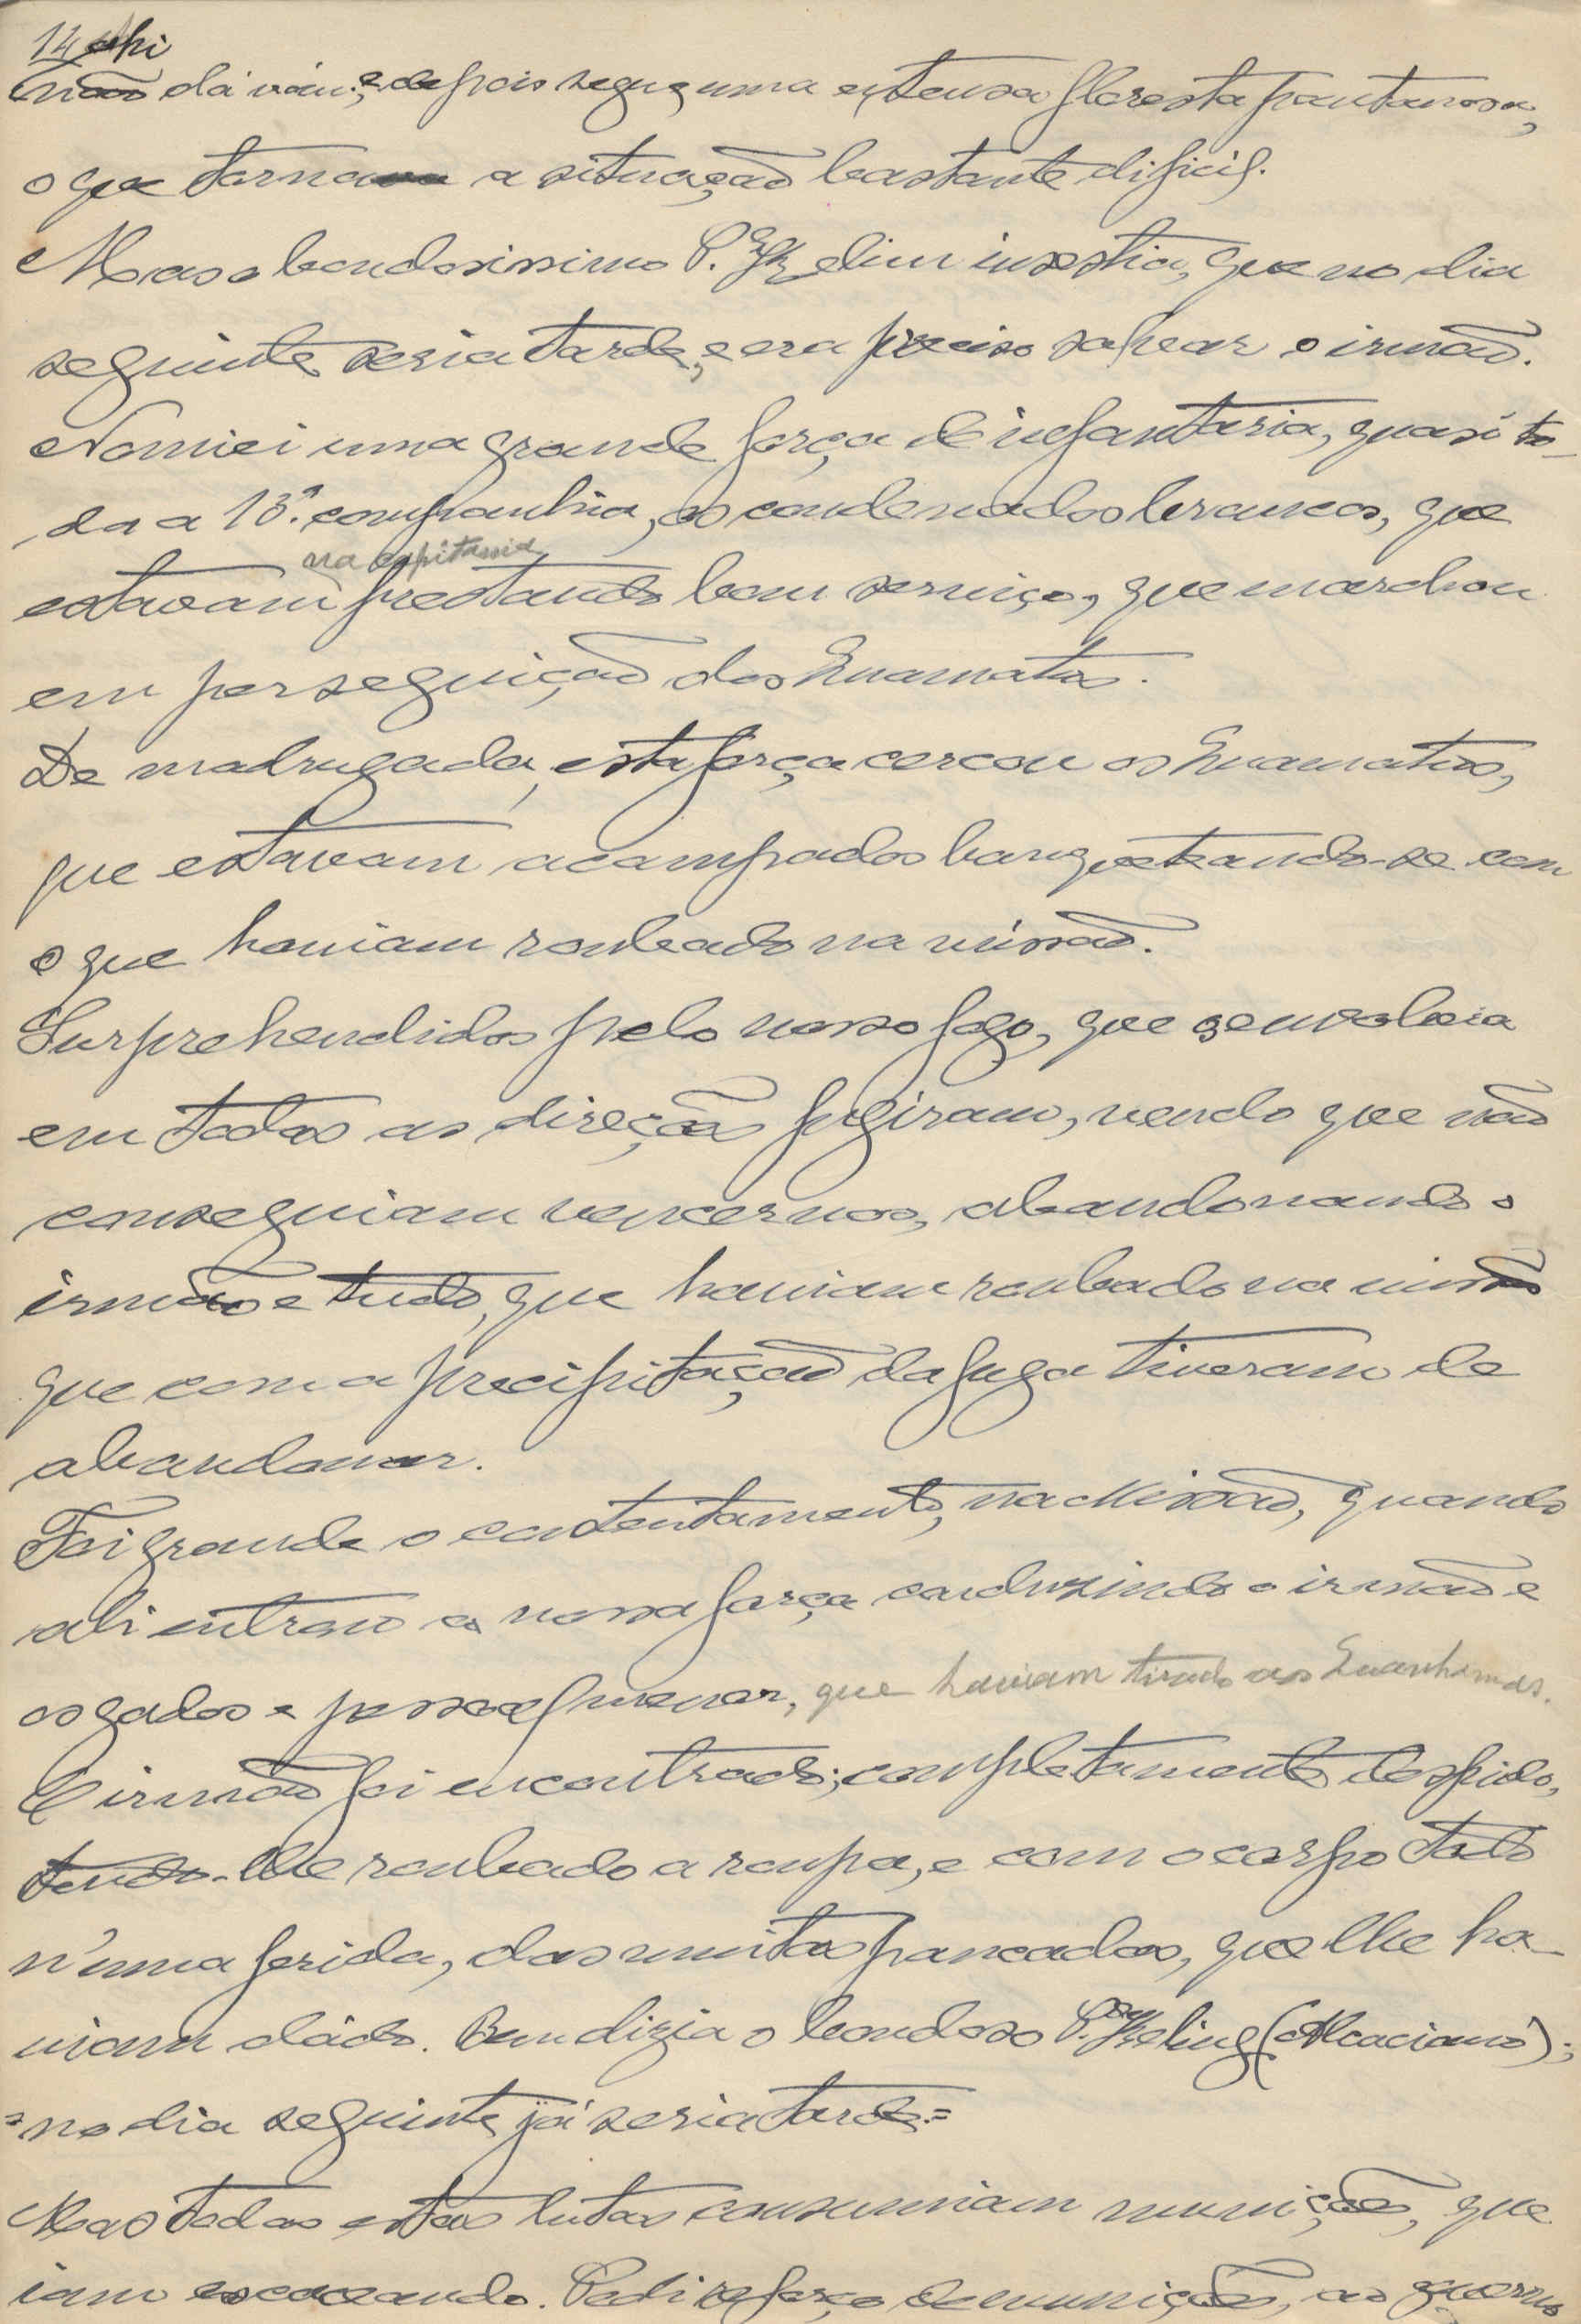 14 ahi
não dá váu; e depois segue, uma extensa floresta pantanosa,
o que torna a situação bastante dificil.
Mas o bondosissimo P. insestia, que no dia
seguinte seria tarde, e era preciso salvar o irmão.
Nomiei uma grande força de infantaria, quasi to-
da a 13ª. companhia, os condenados brancos, que
na capitania
estavam prestando bom serviço, que marchou
em perseguição dos Cuamatos.
De madrugada, esta força cercou os Cuamatos,
que estavam acampados banqueteando-se com
o que haviam roubado na missão.
Surprehendidos pelo nosso fogo, que os envolvia
em todas as direções fugiram, vendo que não
conseguiam vencernos, abandonando o
irmão e tudo, que haviam roubado na missão
que com a precipitação da fuga tiveram de
abandonar.
Foi grande o contentamento, na Missão, quando
ali entrou a nossa força conduzindo o irmão e
os gados e pessoal menor, que haviam tirado aos Cuanhamas.
O irmão foi encontrado; completamente despido,
tendo-lhe roubado a roupa, e com o corpo todo
n'uma ferida, das muitas pancadas, que lhe ha-
viam dádo. Bem dizia o bondoso P. (Alsaciano);
=no dia seguinte já seria tarde.=
Mas todas estas lutas consumiam munições, que
iam escaceando. Pedi reforço de munições, ao governo